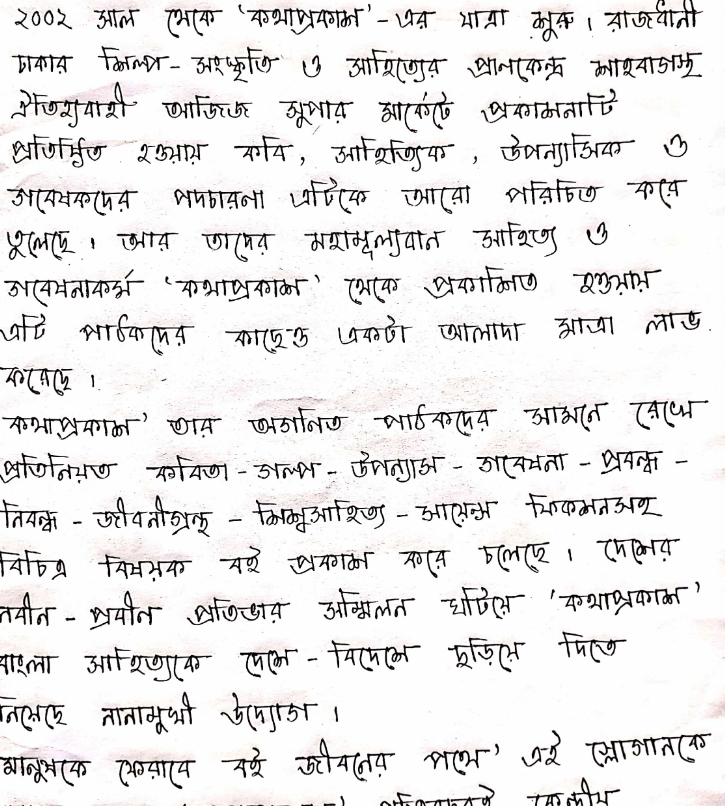 ২০০২ সাল থেকে 'কথাপ্রকাশ'-এর যাত্রা শুরু। রাজধানী
ঢাকার শিল্প-সংস্কৃতি ও সাহিত্যের প্রানকেন্দ্র শাহবাগস্থ
ঐতিহ্যবাহী আজিজ সুপার মার্কেটে প্রকাশনাটি
প্রতিষ্ঠিত হওয়ায় কবি, সাহিত্যিক, উপন্যাসিক ও
গবেষকদের পদচারনা এটিকে আরো পরিচিত করে
তুলেছে। আর তাদের মহামূল্যবান সাহিত্য ও
গবেষনাকর্ম 'কথাপ্রকাশ' থেকে প্রকাশিত হওয়ায়
এটি পাঠকদের কাছেও একটা আলাদা মাত্রা লাভ
করেছে।
কথাপ্রকাশ' তার অগনিত পাঠকদের সামনে রেখে
প্রতিনিয়ত কবিতা-গল্প-উপন্যাস-গবেষনা-প্রবন্ধ-
নিবন্ধ-জীবনীগ্রন্থ-শিশুসাহিত্য-সায়েন্স ফিকশনসহ
বিচিত্র বিষয়ক বই প্রকাশ করে চলেছে। দেশের
নবীন-প্রবীন প্রতিভার সম্মিলন ঘটিয়ে 'কথাপ্রকাশ'
বাংলা সাহিত্যকে দেশে-বিদেশে ছড়িয়ে দিতে
নিয়েছে নানামুখী উদ্যোগ।
মানুষকে ফেরাবে বই জীবনের পথে' এই স্লোগানকে